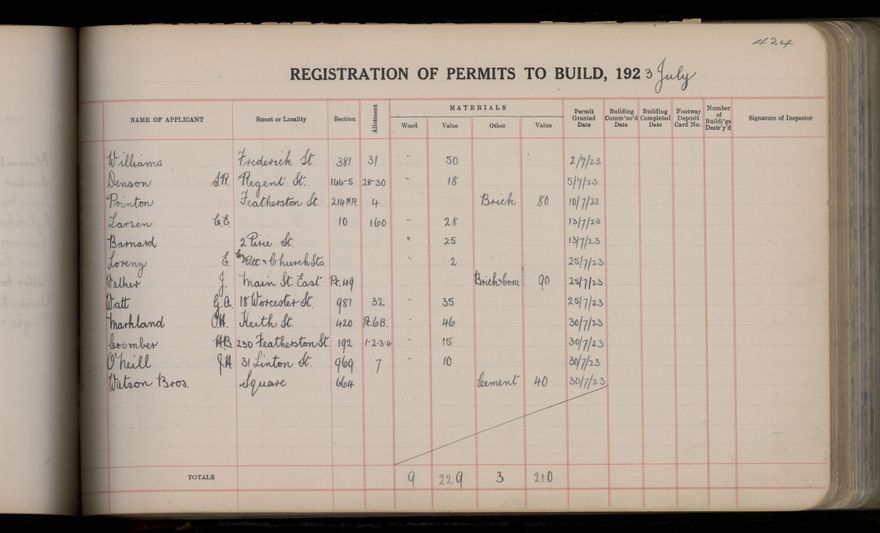 424
REGISTRATION OF PERMITS TO BUILD, 1923 July
NAME OF APPLICANT Street or Locality Section Allotment MATERIALS Wood Value Other Value Permit Granted Date Building Comm'nc'd Date Building Completed Date Footway Deposit Card No. Number of Buildi'gs Destr'y'd Signature of Inspector
Williams Frederick St. 381 31 " 50 2/7/23
Denson S.R. Regent St. 1144-5 28-30 " 18 5/7/23
Pointon Featherston St. 214NR 4 Brick 80 10/7/23
Larsen C.E. 10 160 " 28 13/7/23
Barnard 2 Pirie St. " 25 13/7/23
Lorenz E Cr Pitt & Church Sts " 2 25/7/23
J. Main St. East Pt. 49 Brick 90 25/7/23
Watt G.A. 18 Worcester St. 981 32 " 35 25/7/23
Markland Keith St. 420 Pt. 6B. " 46 30/7/23
Coomber 230 Featherston St. 192 1-2-3-4 " 15 30/7/23
O'Neill J.H 31 Linton St. 969 7 " 10 30/7/23
Watson Bros. Square 664 Cement 40 30/7/23
TOTALS 9 229 3 210